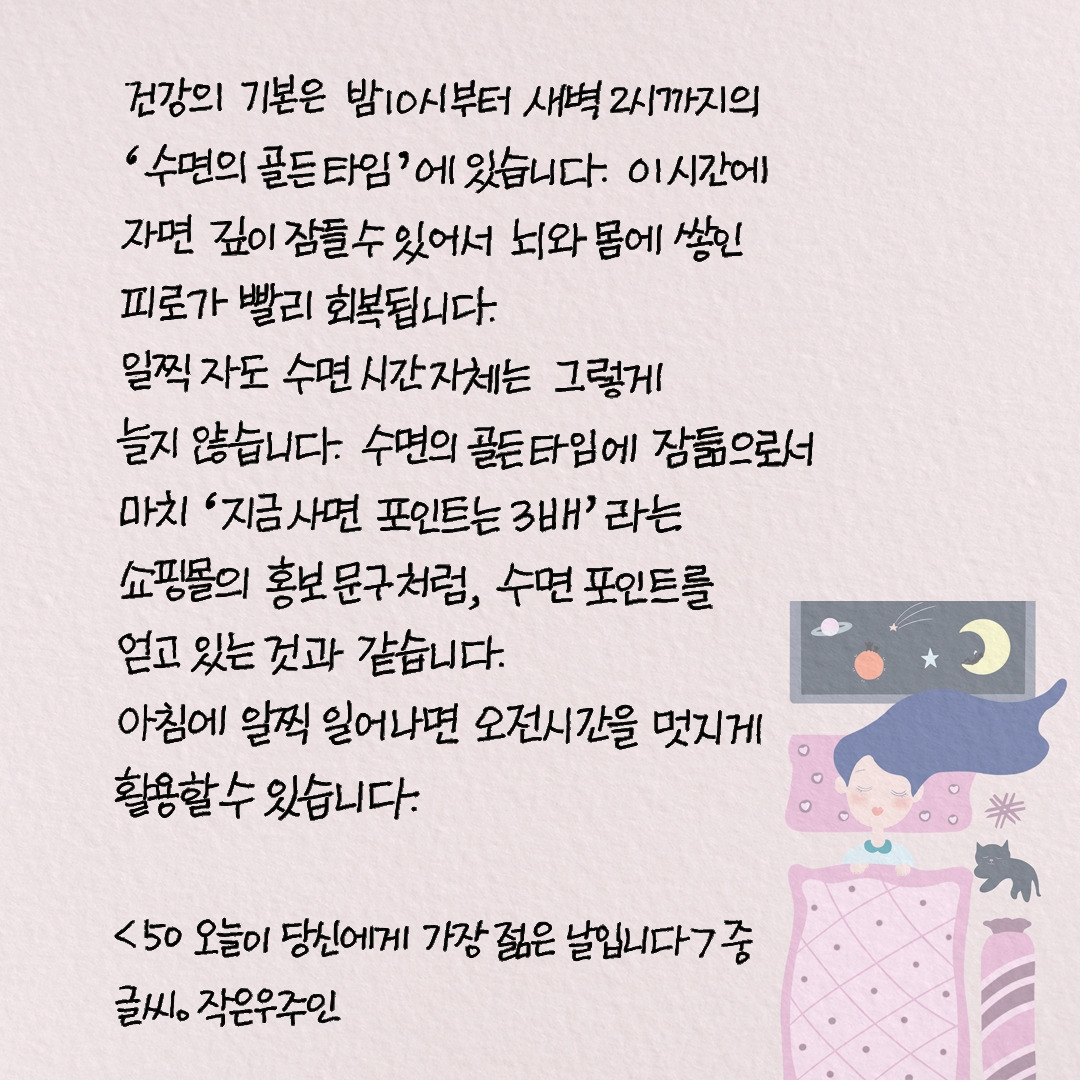 건강의 기본은 밤10시부터 새벽2시까지의
‘수면의 골든타임’에 있습니다. 이 시간에
자면 깊이 잠들수 있어서 뇌와 몸에 쌓인
피로가 빨리 회복됩니다.
일찍 자도 수면 시간 자체는 그렇게
늘지 않습니다. 수면의 골든타임에 잠듦으로서
마치 ‘지금 사면 포인트는 3배’라는
쇼핑몰의 홍보 문구처럼, 수면 포인트를
얻고 있는 것과 같습니다.
아침에 일찍 일어나면 오전시간을 멋지게
활용할수 있습니다.
<50 오늘이 당신에게 가장 젊은 날입니다> 중
글씨。작은우주인